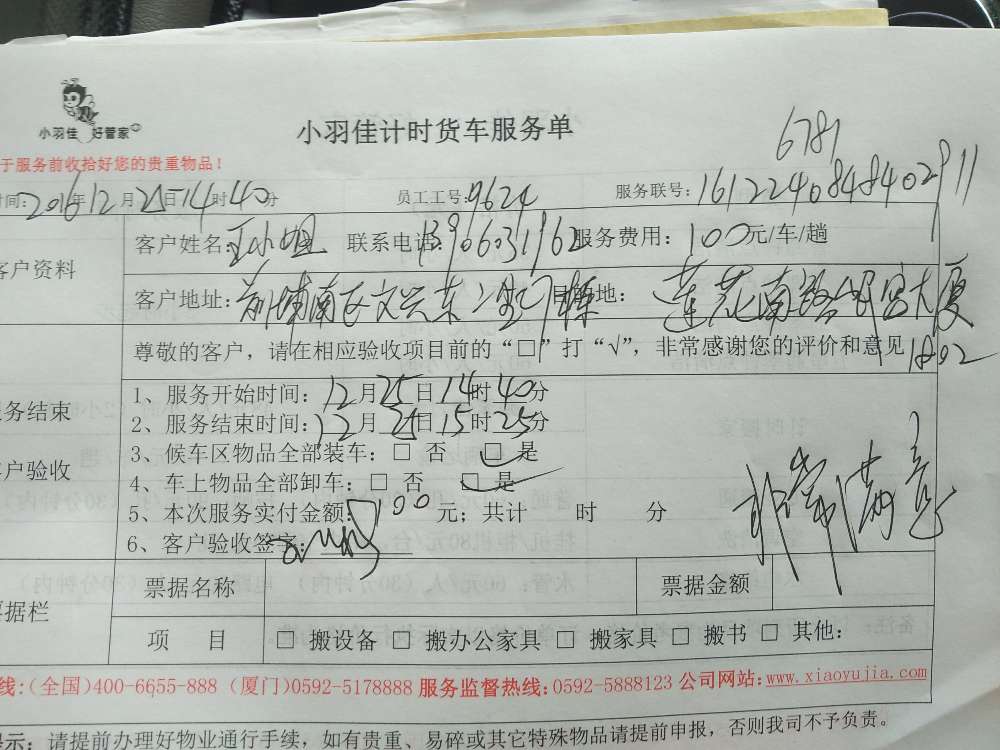 小羽佳 好管家
小羽佳计时货车服务单
6781
于服务前收拾好您的贵重物品!
时间:2016年12月25日14时40分 员工工号:9624 服务联号:1612240848402911
客户姓名:王小姐 联系电话:13906031962 服务费用:100元/车/趟
客户资料
客户地址: 目的地:莲花南路 大厦
1802
尊敬的客户,请在相应验收项目前的“□”打“√”,非常感谢您的评价和意见
1、服务开始时间:12月25日14时40分
服务结束
2、服务结束时间:12月25日15时25分
3、候车区物品全部装车:□ 否 ☑ 是
客户验收
4、车上物品全部卸车:□ 否 ☑ 是
非常满意
5、本次服务实付金额: 元;共计 时 分
6、客户验收签字:
票据名称 票据金额
票据栏
项 目 □ 搬设备 □ 搬办公家具 □ 搬家具 □ 搬书 □ 其他:
线:(全国)400-6655-888 (厦门)0592-5178888 服务监督热线:0592-5888123 公司网站:www.xiaoyujia.com
提示:请提前办理好物业通行手续,如有贵重、易碎或其它特殊物品请提前申报,否则我司不予负责。